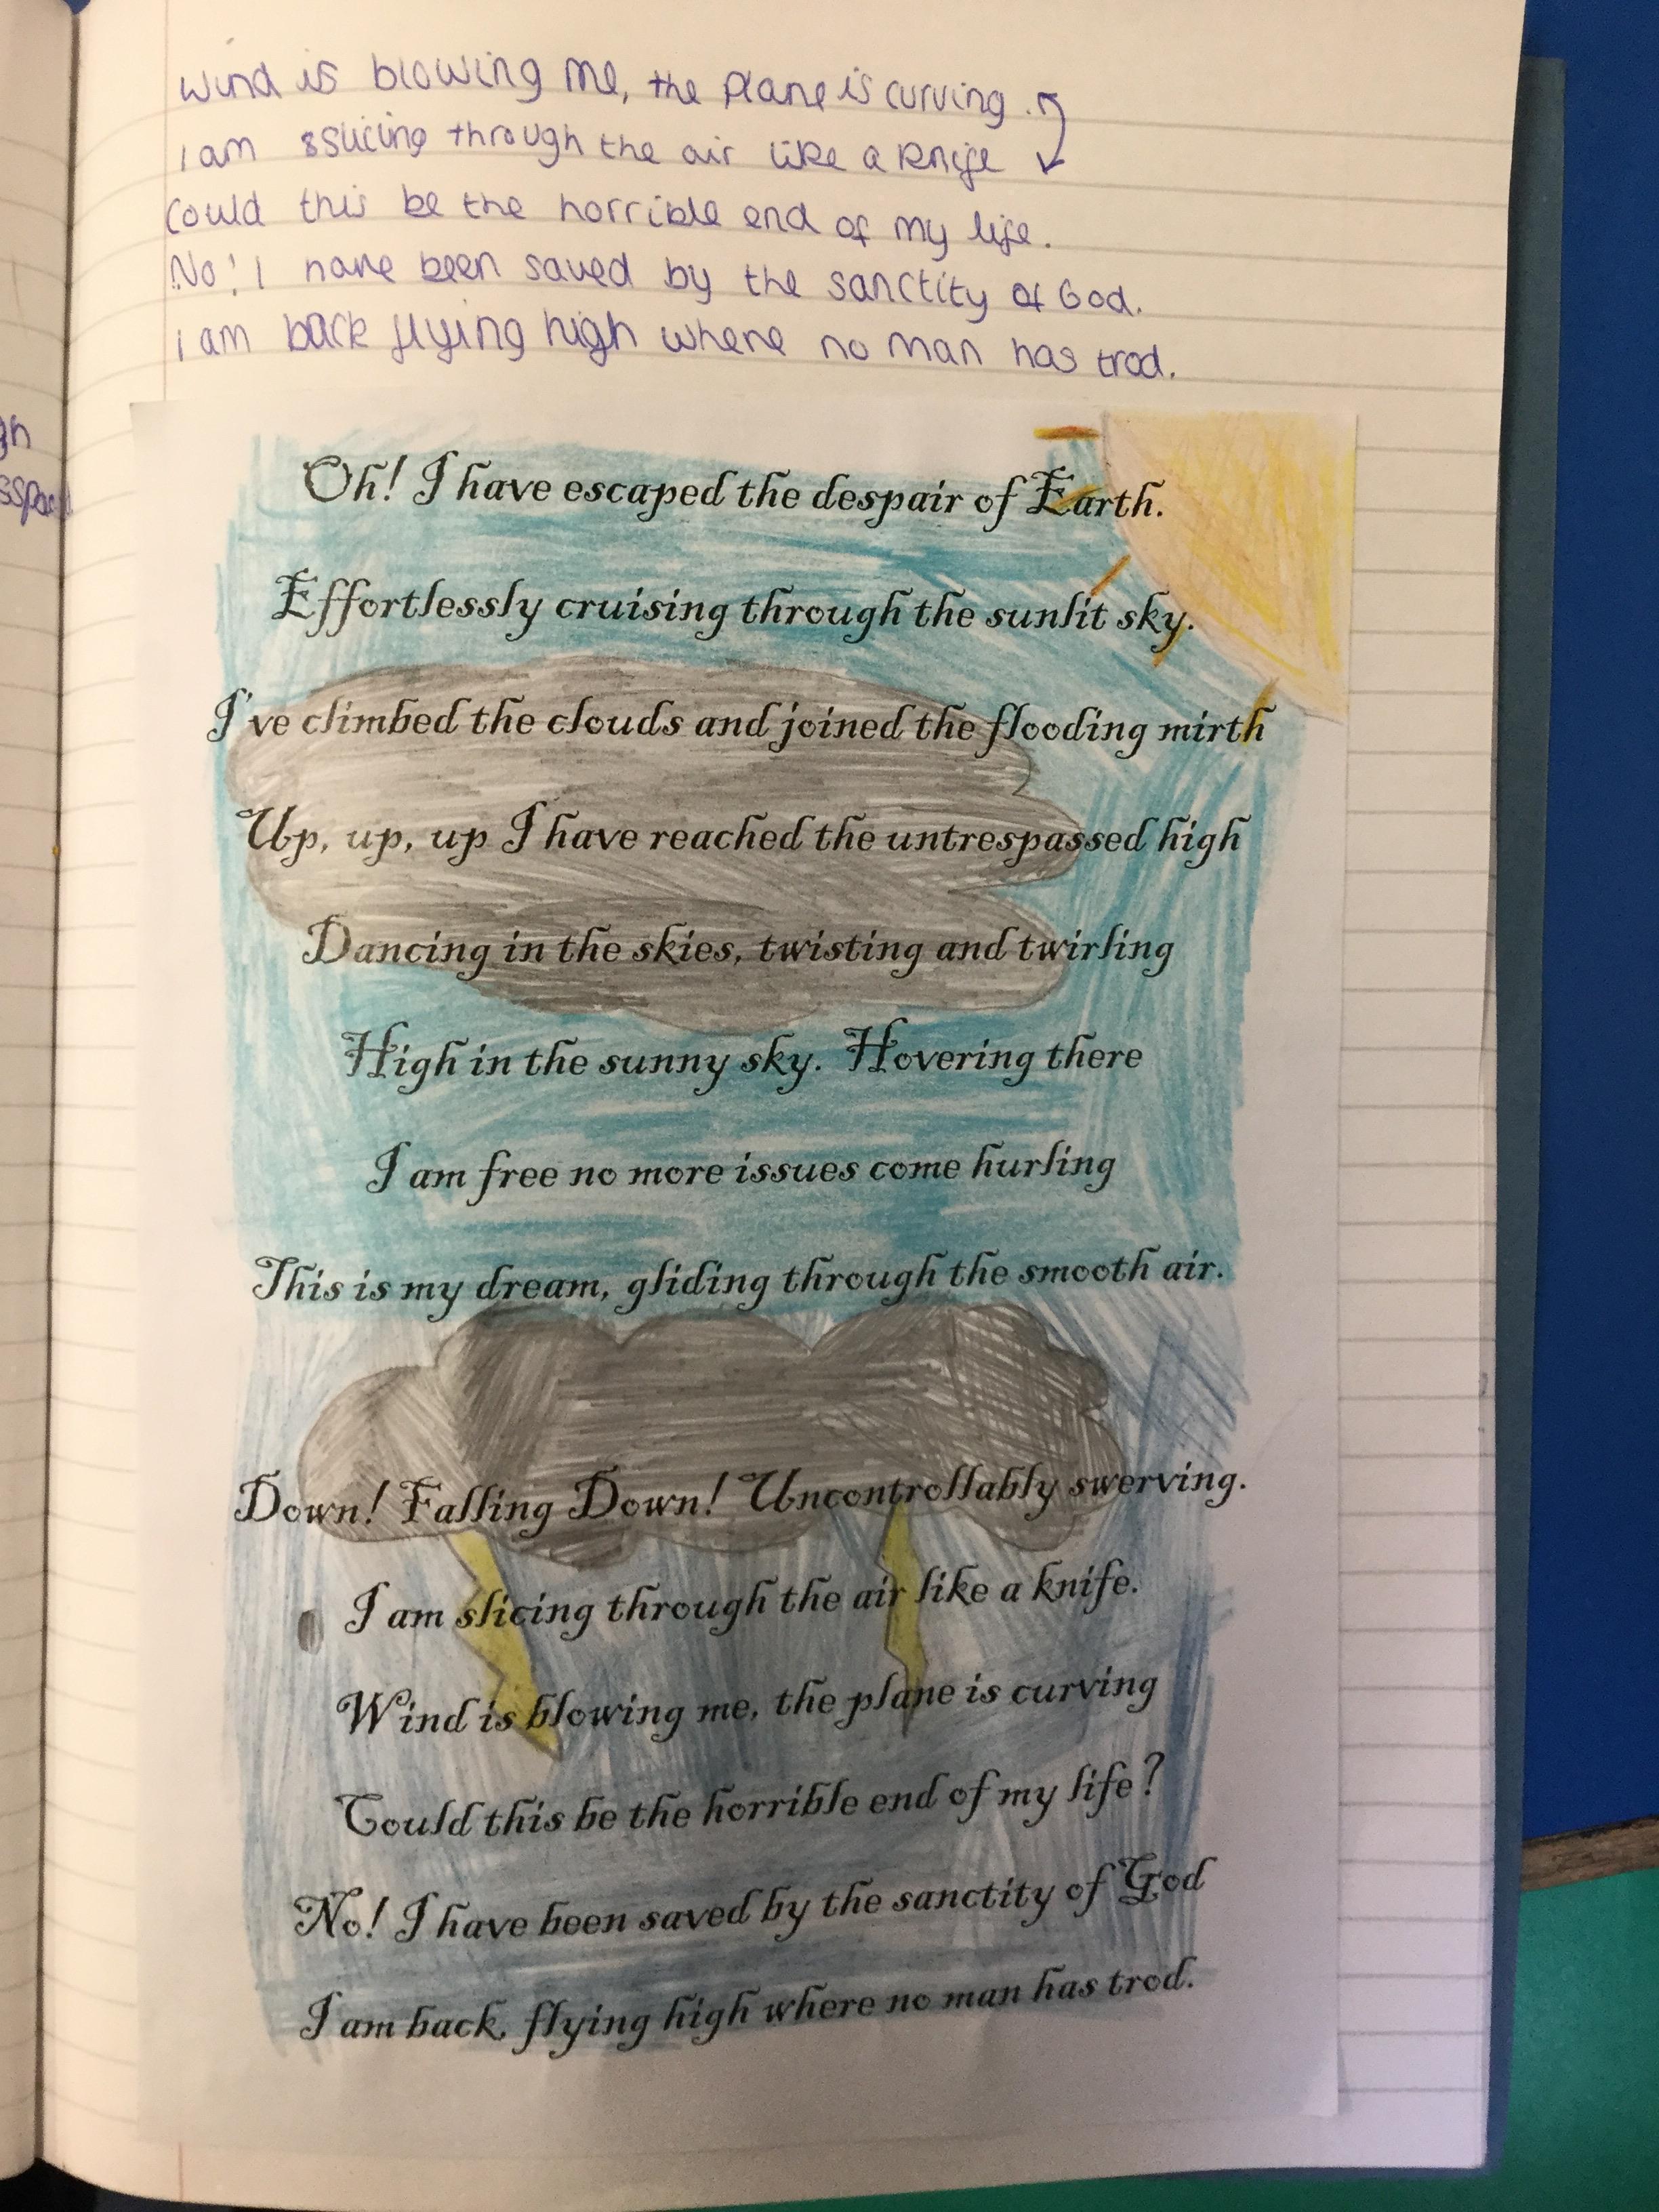 gh
wind is blowing me, the plane is curving.
I am sslicing through the air like a knife
Could this be the horrible end of my life.
No! I have been saved by the sanctity of God.
I am back flying high where no man has trod.
Oh! I have escaped the despair of Earth.
Effortlessly cruising through the sunlit sky.
I've climbed the clouds and joined the flooding mirth
Up, up, up I have reached the untrespassed high
Dancing in the skies, twisting and twirling
High in the sunny sky. Hovering there
I am free no more issues come hurling
This is my dream, gliding through the smooth air.
Down! Falling Down! Uncontrollably swerving.
I am slicing through the air like a knife.
Wind is blowing me, the plane is curving
Could this be the horrible end of my life?
No! I have been saved by the sanctity of God
I am back, flying high where no man has trod.